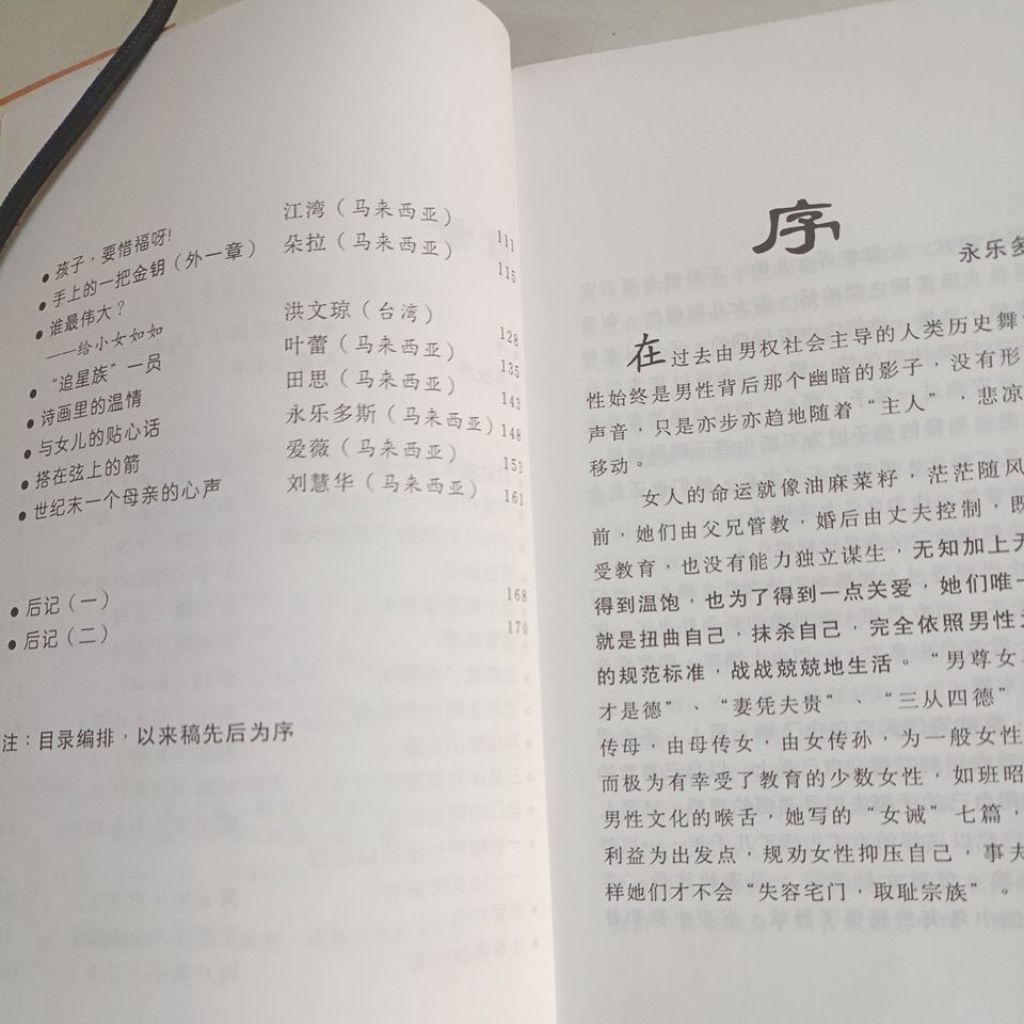 ●孩子，要惜福呀! 江湾（马来西亚） 111
●手上的一把金钥（外一章） 朵拉（马来西亚） 115
●谁最伟大？
——给小女如如 洪文琼（台湾） 128
●“追星族”一员 叶蕾（马来西亚） 135
●诗画里的温情 田思（马来西亚） 143
●与女儿的贴心话 永乐多斯（马来西亚） 148
●搭在弦上的箭 爱薇（马来西亚） 153
●世纪末一个母亲的心声 刘慧华（马来西亚） 161
●后记（一） 168
●后记（二） 170
注：目录编排，以来稿先后为序
序
永乐多
在过去由男权社会主导的人类历史舞
性始终是男性背后那个幽暗的影子，没有形
声音，只是亦步亦趋地随着“主人”，悲凉
移动。
女人的命运就像油麻菜籽，茫茫随风
前，她们由父兄管教，婚后由丈夫控制，既
受教育，也没有能力独立谋生，无知加上无
得到温饱，也为了得到一点关爱，她们唯一
就是扭曲自己，抹杀自己，完全依照男性
的规范标准，战战兢兢地生活。“男尊女
才是德”、“妻凭夫贵”、“三从四德”
传母，由母传女，由女传孙，为一般女性
而极为有幸受了教育的少数女性，如班昭
男性文化的喉舌，她写的“女诫”七篇，
利益为出发点，规劝女性抑压自己，事夫
样她们才不会“失容宅门，取耻宗族”。